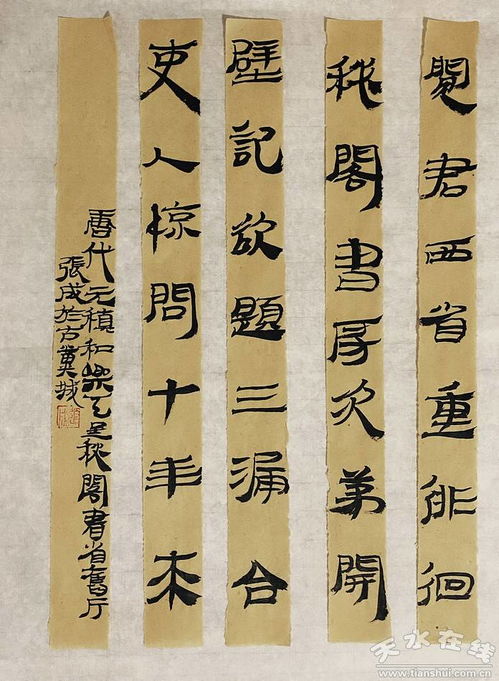 聞君西省重徘徊
秘閣書房次弟開
壁記欲題三漏合
吏人惊問十年来
唐代元稹和樂天呈秘閣書省舊厅
張成於古冀城
天水在线
www.tianshui.com.cn